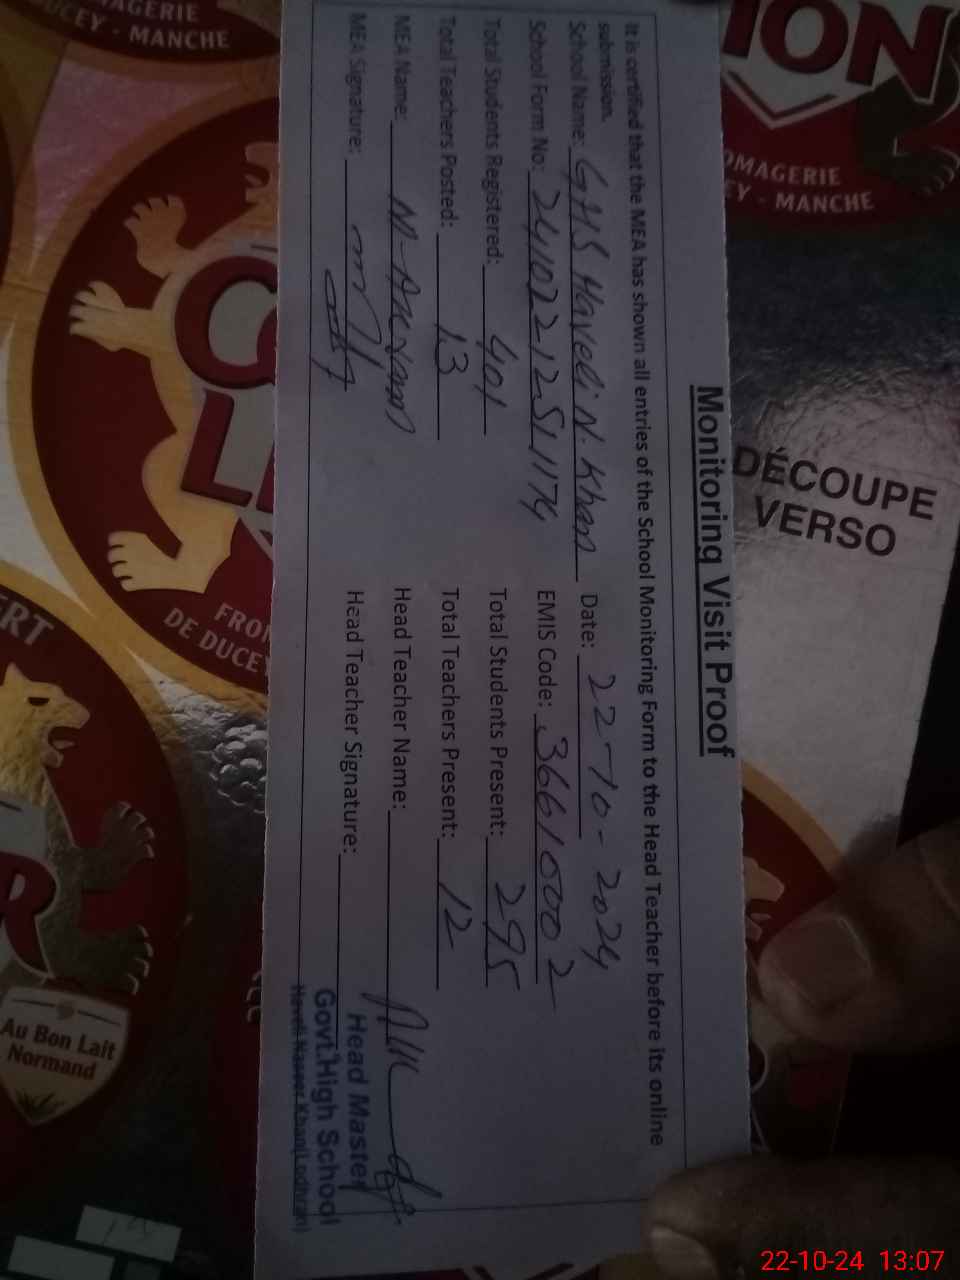 Monitoring Visit Proof
It is certified that the MEA has shown all entries of the School Monitoring Form to the Head Teacher before its online
submission.
School Name: GHS Haveli N. Khan Date: 22-10-2024
School Form No: 24102212511174 EMIS Code: 36610002
Total Students Registered: 401 Total Students Present: 295
Total Teachers Posted: 13 Total Teachers Present: 12
MEA Name: Head Teacher Name:
MEA Signature: Head Teacher Signature:
Head Master
Govt.High School
Haveli Naseer Khan(Lodhran)
AGERIE
UCEY - MANCHE
ION
OMAGERIE
EY - MANCHE
DÉCOUPE
VERSO
FRO
DE DUCEY
ERT
R
Au Bon Lait
Normand
22-10-24 13:07